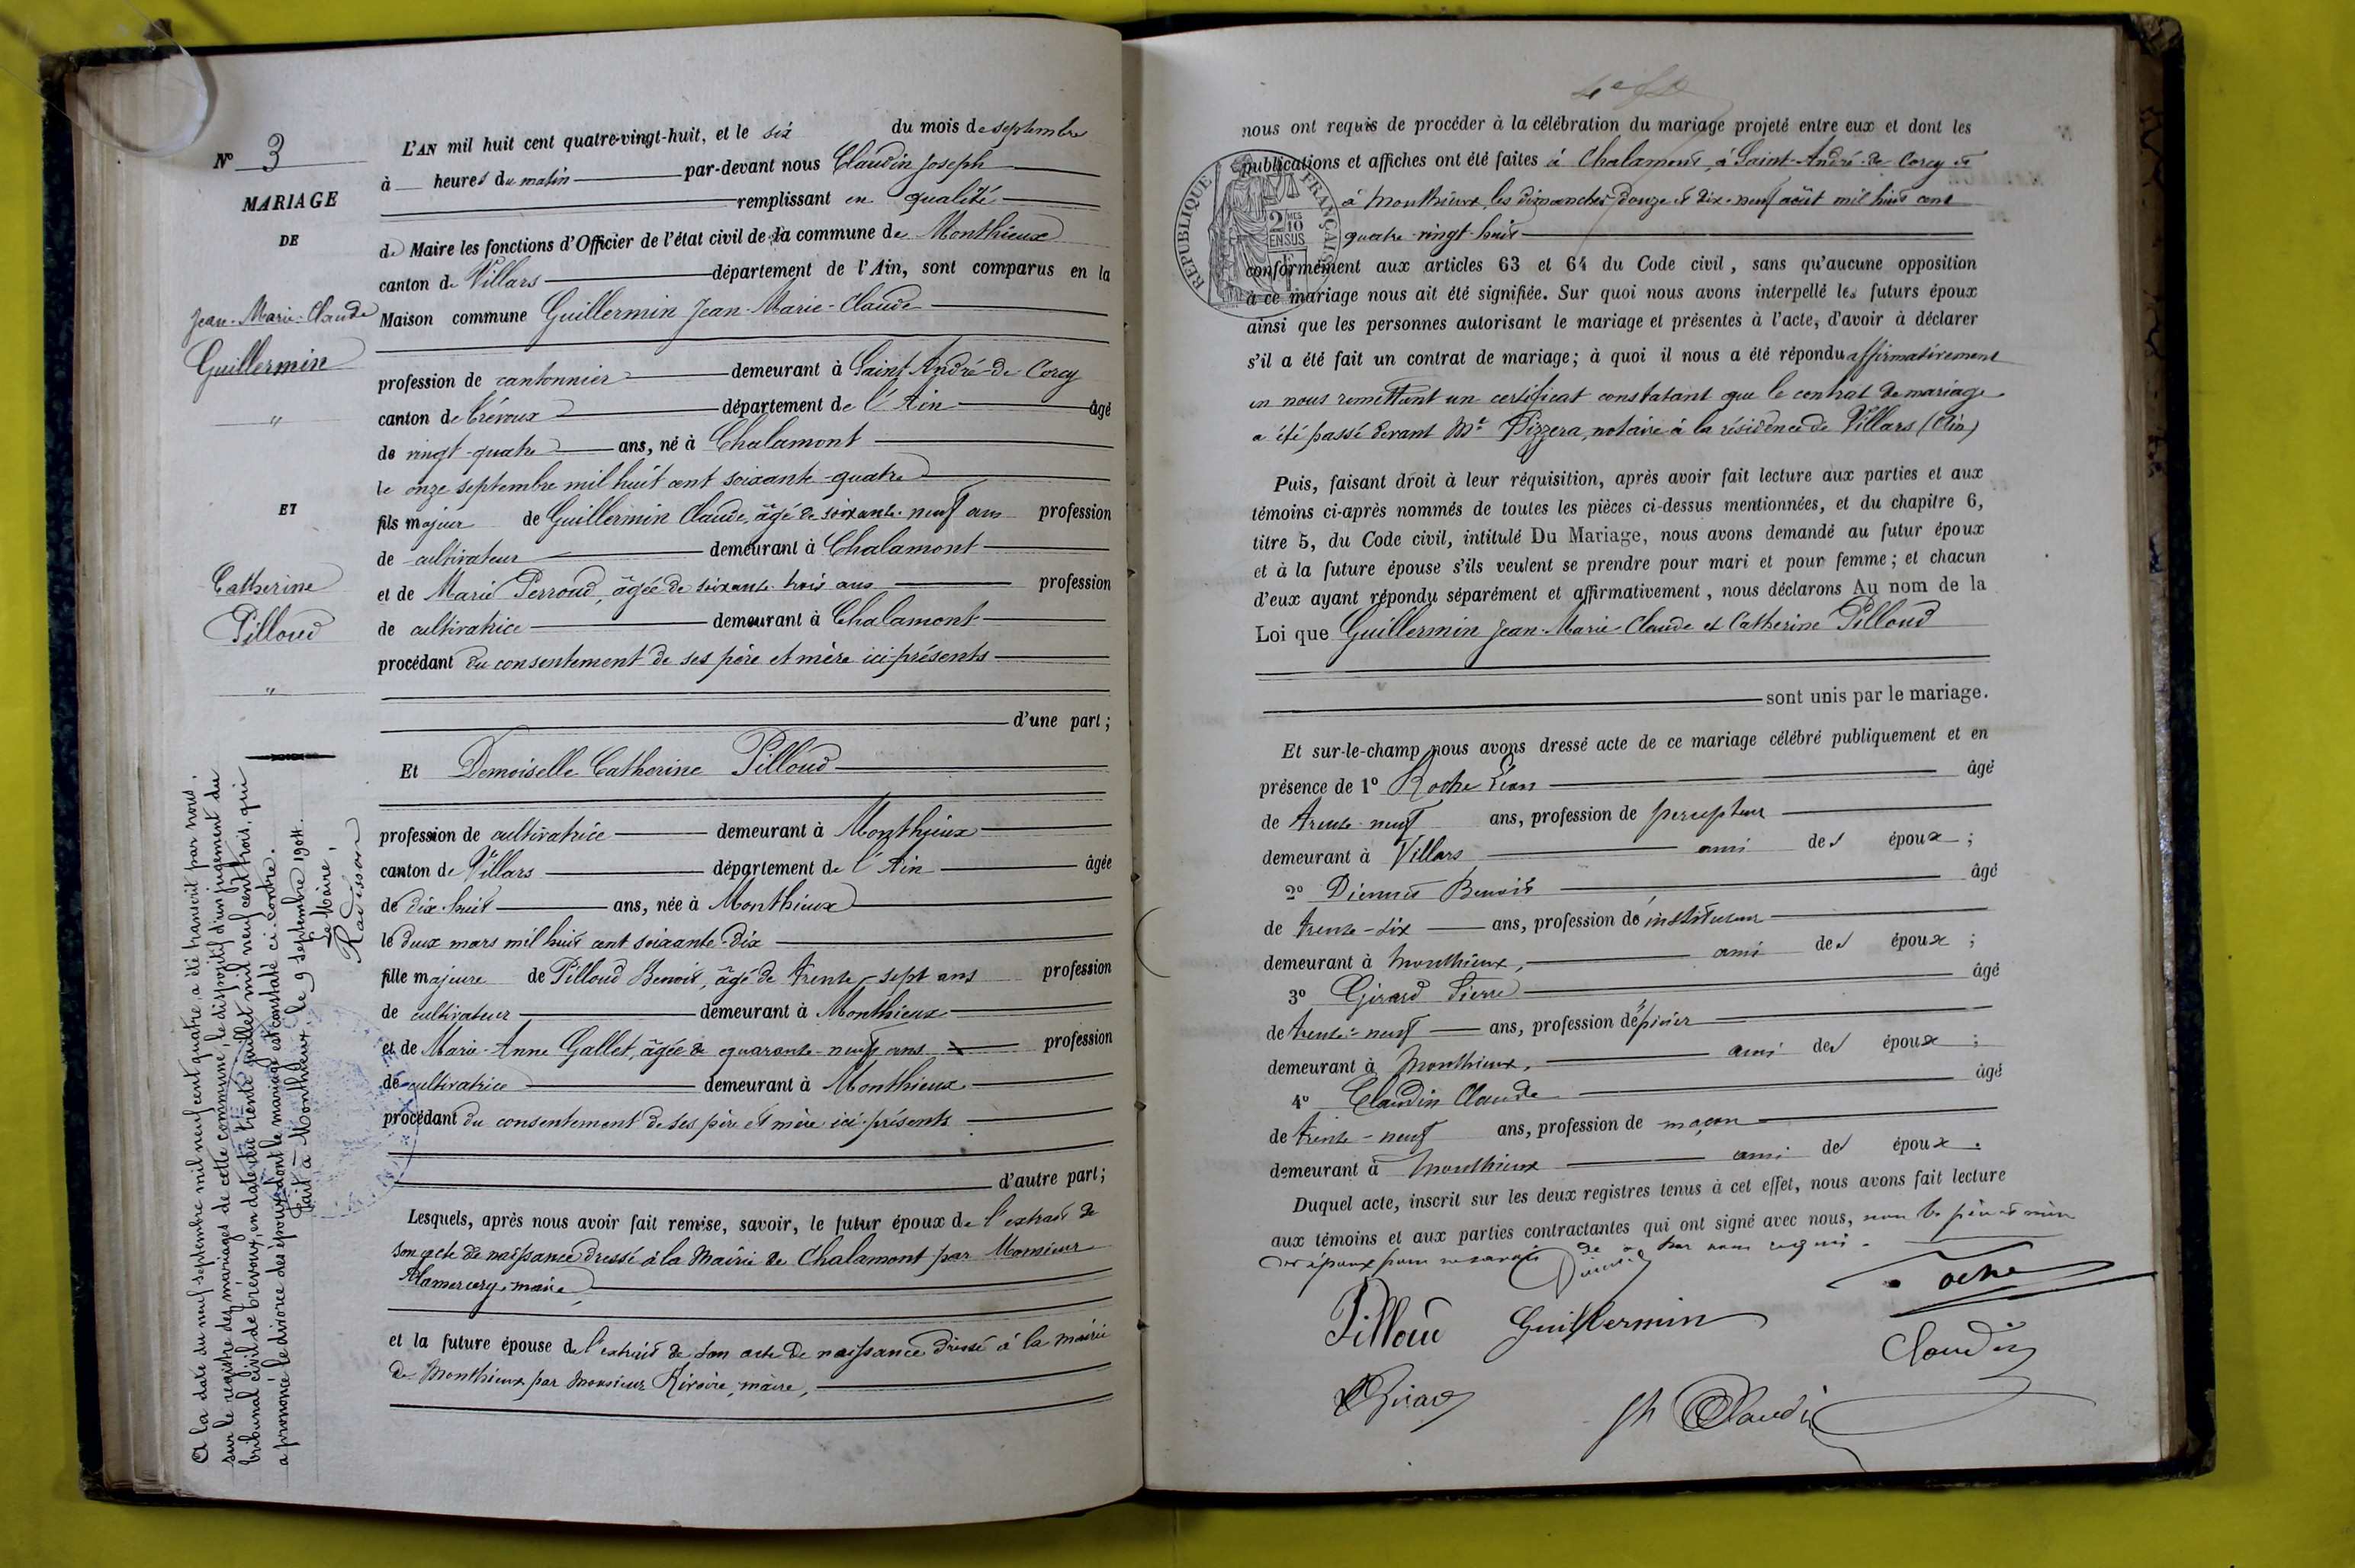 N° 3
MARIAGE
DE
Jean-Marie-Claude
Guillermin
"
ET
Catherine
Pilloud
"
A la date du neuf septembre mil neuf cent quatre, a été transcrit par nous,
sur le registre des mariages de cette commune, le dispositif d'un jugement du
tribunal civil de Trévoux, en date du trente juillet mil neuf cent trois, qui
a prononcé le divorce des époux dont le mariage est constaté ci-contre.
Fait à Monthieux, le 9 septembre 1904.
Le Maire,
L'AN mil huit cent quatre-vingt-huit, et le six du mois de septembre
à heures du matin par-devant nous Claudin Joseph
remplissant en qualité
de Maire les fonctions d'Officier de l'état civil de la commune de Monthieux
canton de Villars département de l'Ain, sont comparus en la
Maison commune Guillermin Jean-Marie-Claude
profession de cantonnier demeurant à Saint-André-de-Corcy
canton de Trévoux département de l'Ain âgé
de vingt-quatre ans, né à Chalamont
le onze septembre mil huit cent soixante-quatre
fils majeur de Guillermin Claude, âgé de soixante-neuf ans profession
de cultivateur demeurant à Chalamont
et de Marie Perroud, âgée de soixante-trois ans profession
de cultivatrice demeurant à Chalamont
procédant du consentement de ses père et mère ici présents
d'une part;
Et Demoiselle Catherine Pilloud
profession de cultivatrice demeurant à Monthieux
canton de Villars département de l'Ain âgée
de dix-huit ans, née à Monthieux
le deux mars mil huit cent soixante-dix
fille majeure de Pilloud Benoit, âgé de trente-sept ans profession
de cultivateur demeurant à Monthieux
et de Marie-Anne Gallet, âgée de quarante-neuf ans profession
de cultivatrice demeurant à Monthieux
procédant du consentement de ses père et mère ici présents
d'autre part;
Lesquels, après nous avoir fait remise, savoir, le futur époux de l'extrait de
son acte de naissance dressé à la Mairie de Chalamont par Monsieur
maire
et la future épouse de l'extrait de son acte de naissance dressé à la mairie
de Monthieux par Monsieur Rivoire, maire,
nous ont requis de procéder à la célébration du mariage projeté entre eux et dont les
publications et affiches ont été faites à Chalamont, à Saint-André-de-Corcy et
à Monthieux les dimanches douze et dix-neuf août mil huit cent
quatre-vingt-huit
RÉPUBLIQUE FRANÇAISE
2 MES 10
EN SUS
conformément aux articles 63 et 64 du Code civil, sans qu'aucune opposition
à ce mariage nous ait été signifiée. Sur quoi nous avons interpellé les futurs époux
ainsi que les personnes autorisant le mariage et présentes à l'acte, d'avoir à déclarer
s'il a été fait un contrat de mariage; à quoi il nous a été répondu affirmativement
en nous remettant un certificat constatant que le contrat de mariage
a été passé devant Me Pizzera, notaire à la résidence de Villars (Ain)
Puis, faisant droit à leur réquisition, après avoir fait lecture aux parties et aux
témoins ci-après nommés de toutes les pièces ci-dessus mentionnées, et du chapitre 6,
titre 5, du Code civil, intitulé Du Mariage, nous avons demandé au futur époux
et à la future épouse s'ils veulent se prendre pour mari et pour femme; et chacun
d'eux ayant répondu séparément et affirmativement, nous déclarons Au nom de la
Loi que Guillermin Jean-Marie-Claude et Catherine Pilloud
sont unis par le mariage.
Et sur-le-champ nous avons dressé acte de ce mariage célébré publiquement et en
présence de 1° Roche Léon âgé
de trente-neuf ans, profession de percepteur
demeurant à Villars ami des époux;
2° Benoit âgé
de trente-six ans, profession de instituteur
demeurant à Monthieux, ami des époux;
3° Girard Pierre âgé
de trente-neuf ans, profession d'épicier
demeurant à Monthieux, ami des époux;
4° Claudin Claude âgé
de trente-neuf ans, profession de maçon
demeurant à Monthieux ami des époux.
Duquel acte, inscrit sur les deux registres tenus à cet effet, nous avons fait lecture
aux témoins et aux parties contractantes qui ont signé avec nous, non les père et mère
des époux pour ne savoir de ce par nous requis.
Pilloud Guillermin Roche
Claudin
Girard Jh Claudin